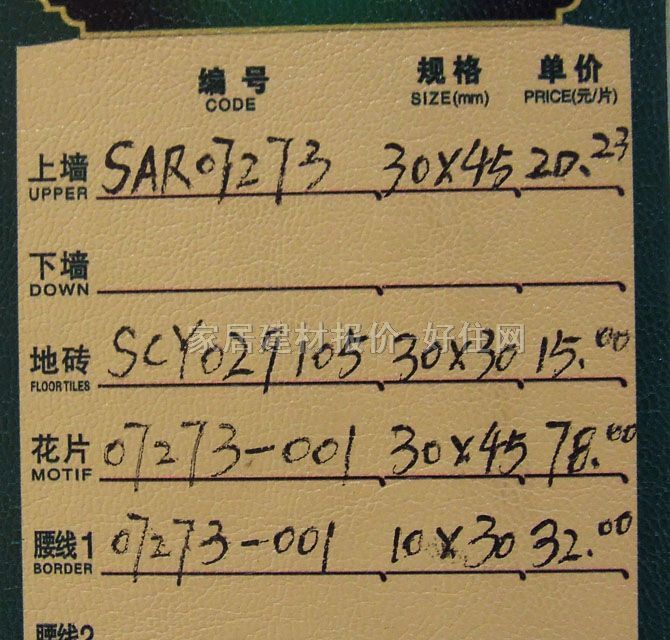 编号 规格 单价
CODE SIZE(mm) PRICE(元/片)
上墙 SAR07273 30X45 20.23
UPPER
下墙
DOWN
家居建材报价 好住网
地砖 SCY029105 30X30 15.00
FLOORTILES
花片 07273-001 30X45 78.00
MOTIF
腰线1 07273-001 10X30 32.00
BORDER
腰线2